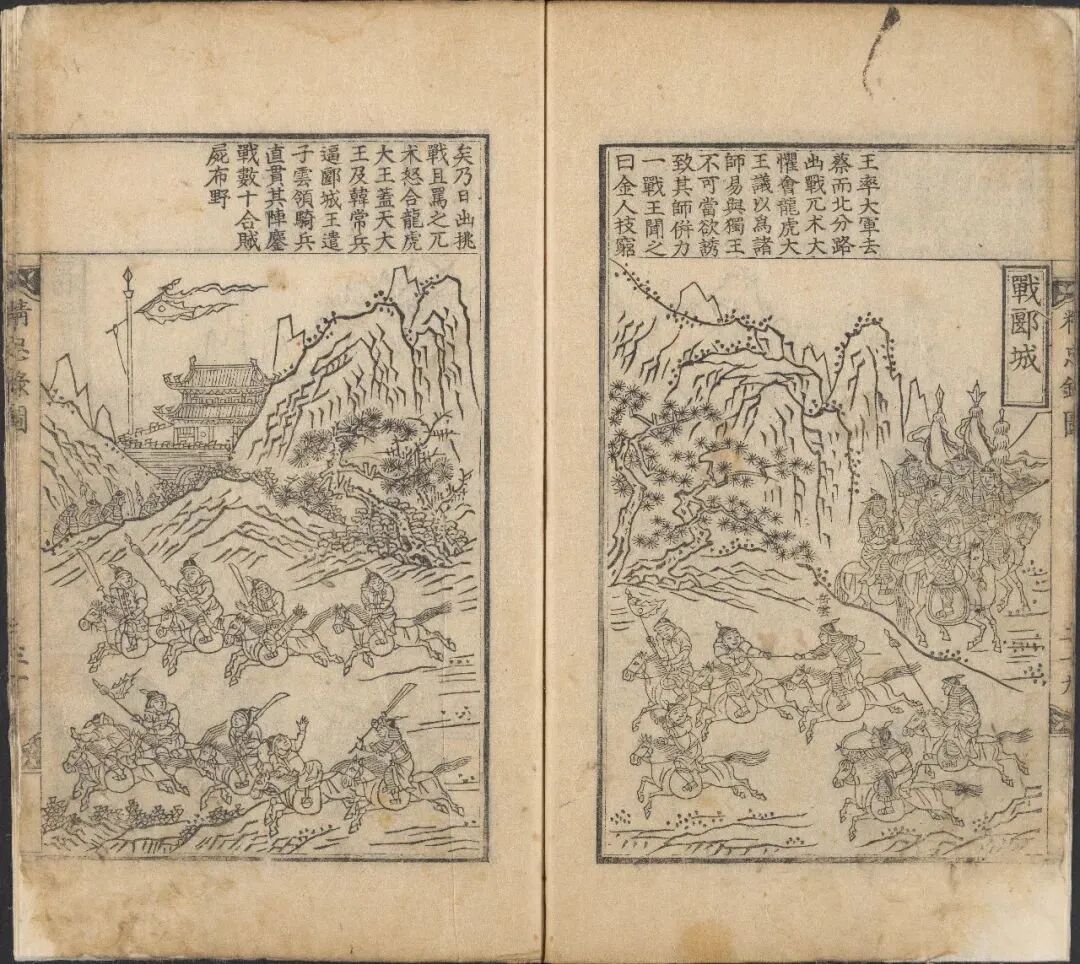 戰郾城
王率大軍去
蔡而北分路
出戰兀术大
懼會龍虎大
王議以爲諸
師易與獨王
不可當欲誘
致其師併力
一戰王聞之
曰金人技窮
岳雲
矣乃日出挑
戰且罵之兀
术怒合龍虎
大王蓋天大
王及韓常兵
逼郾城王遣
子雲領騎兵
直貫其陣鏖
戰數十合賊
屍布野
精忠錄圖